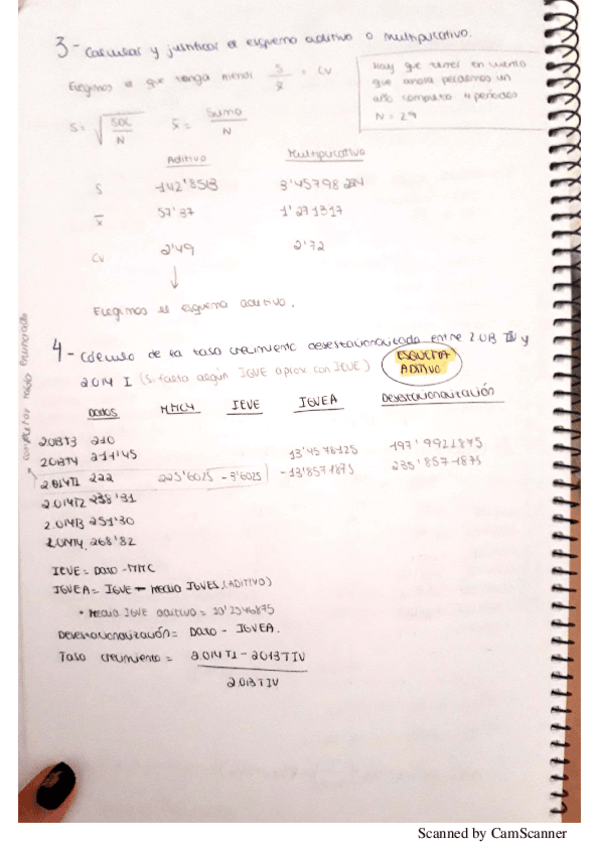 3- Calcular y justificar el esquema aditivo o multiplicativo.
Elegimos el que tenga menor S/x̄ = CV
Hay que tener en cuenta
que ahora perdemos un
año completo 4 periodos
N = 29
S = √SDC/N x̄ = Suma/N
Aditivo Multiplicativo
S 142'8513 3'45798
x̄ 57'37 1'271317
CV 2'49 2'72
↓
Elegimos el esquema aditivo.
4- Cálculo de la tasa crecimiento desestacionalizada entre 2013 IV y
2014 I (Si falta algún IGVE aprox con IEVE) ESQUEMA
ADITIVO
Datos MMC4 IEVE IGVEA Desestacionalización
2013T3 210
2013T4 211'45 13'4578125 197'9921875
2.014T1 222 225'6025 -3'6025 -13'8571875 235'8571875
2.014T2 238'31
2.014T3 251'30
2.014T4 268'82
IEVE = Dato - MMC
IGVEA = IGVE - Media IGVES (ADITIVO)
• Media IGVE aditivo = 10'2546875
Desestacionalización = Dato - IGVEA.
Tasa crecimiento = 2.014T1 - 2013TIV
2.013TIV
Scanned by CamScanner